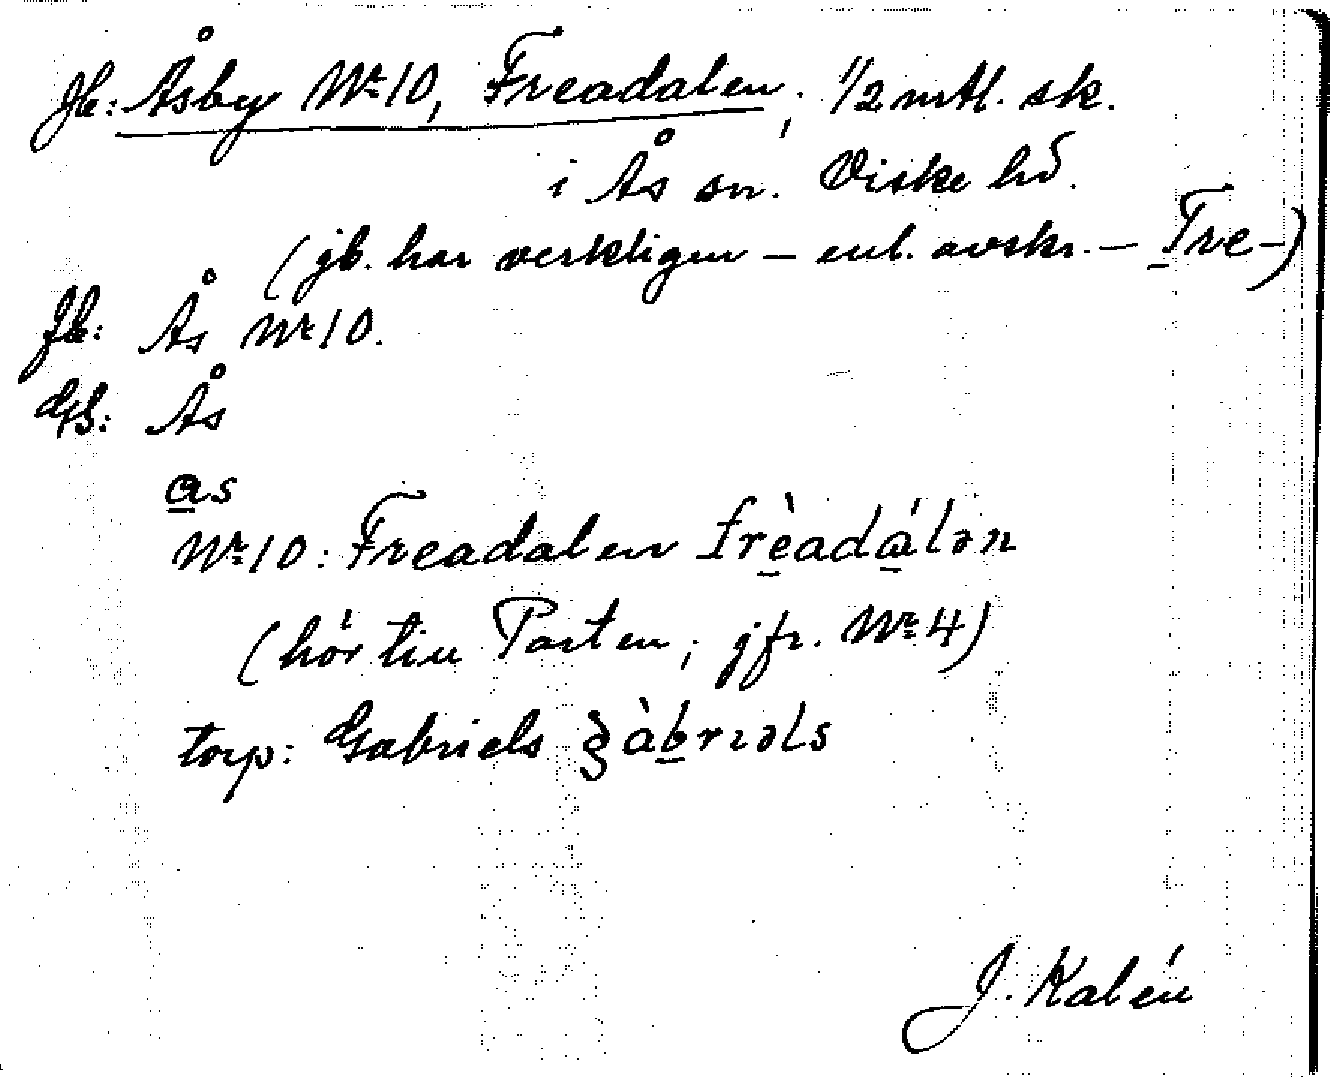 Jb: Åsby Nr 10, Freadalen, 1/2 mtl. sk.
i Ås sn. Viske hd.
(jb. har verkligen – enl. avskr. – Fre-)
Jb: Ås Nr 10.
Gb: Ås
a̲s
Nr 10: Freadalen frè̲adá̲lən
(hör till Parten; jfr. Nr 4)
torp: Gabriels gàb̲rıəls
J. Kalén